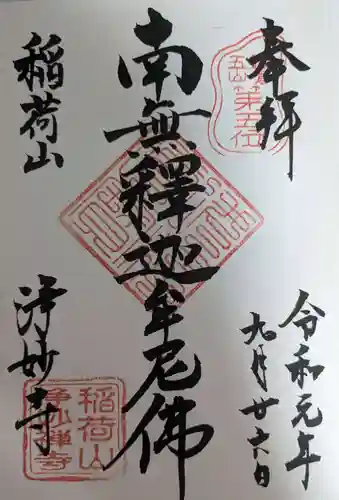 奉拝
第五位
令和元年
九月廿六日
南無釋迦牟尼佛
稲荷山
浄妙寺
稲荷山
浄妙禅寺